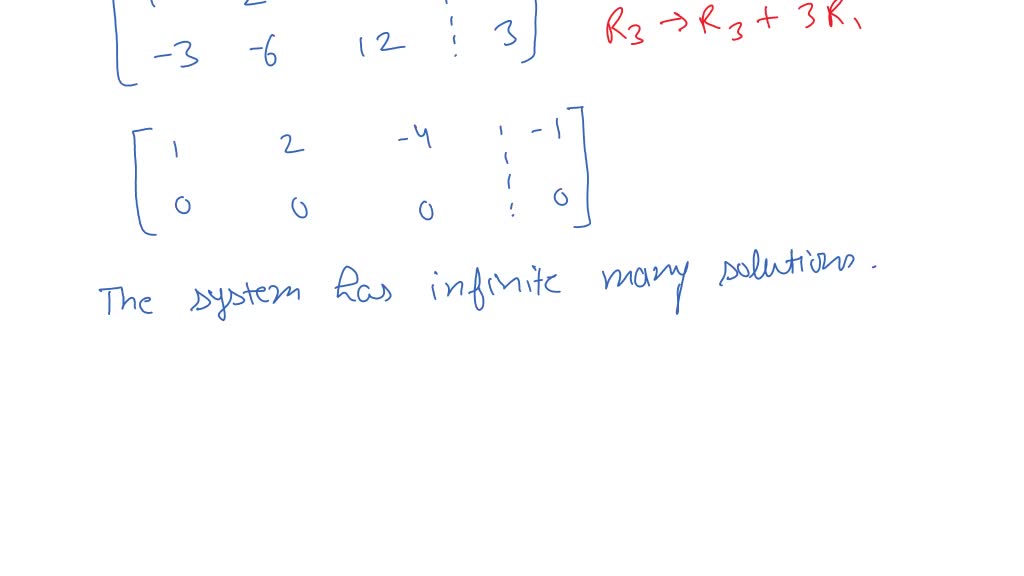 -3 -6 12 ⋮ 3 R3 → R3 + 3R1
1 2 -4 ⋮ -1
0 0 0 ⋮ 0
The system has infinite many solutions.